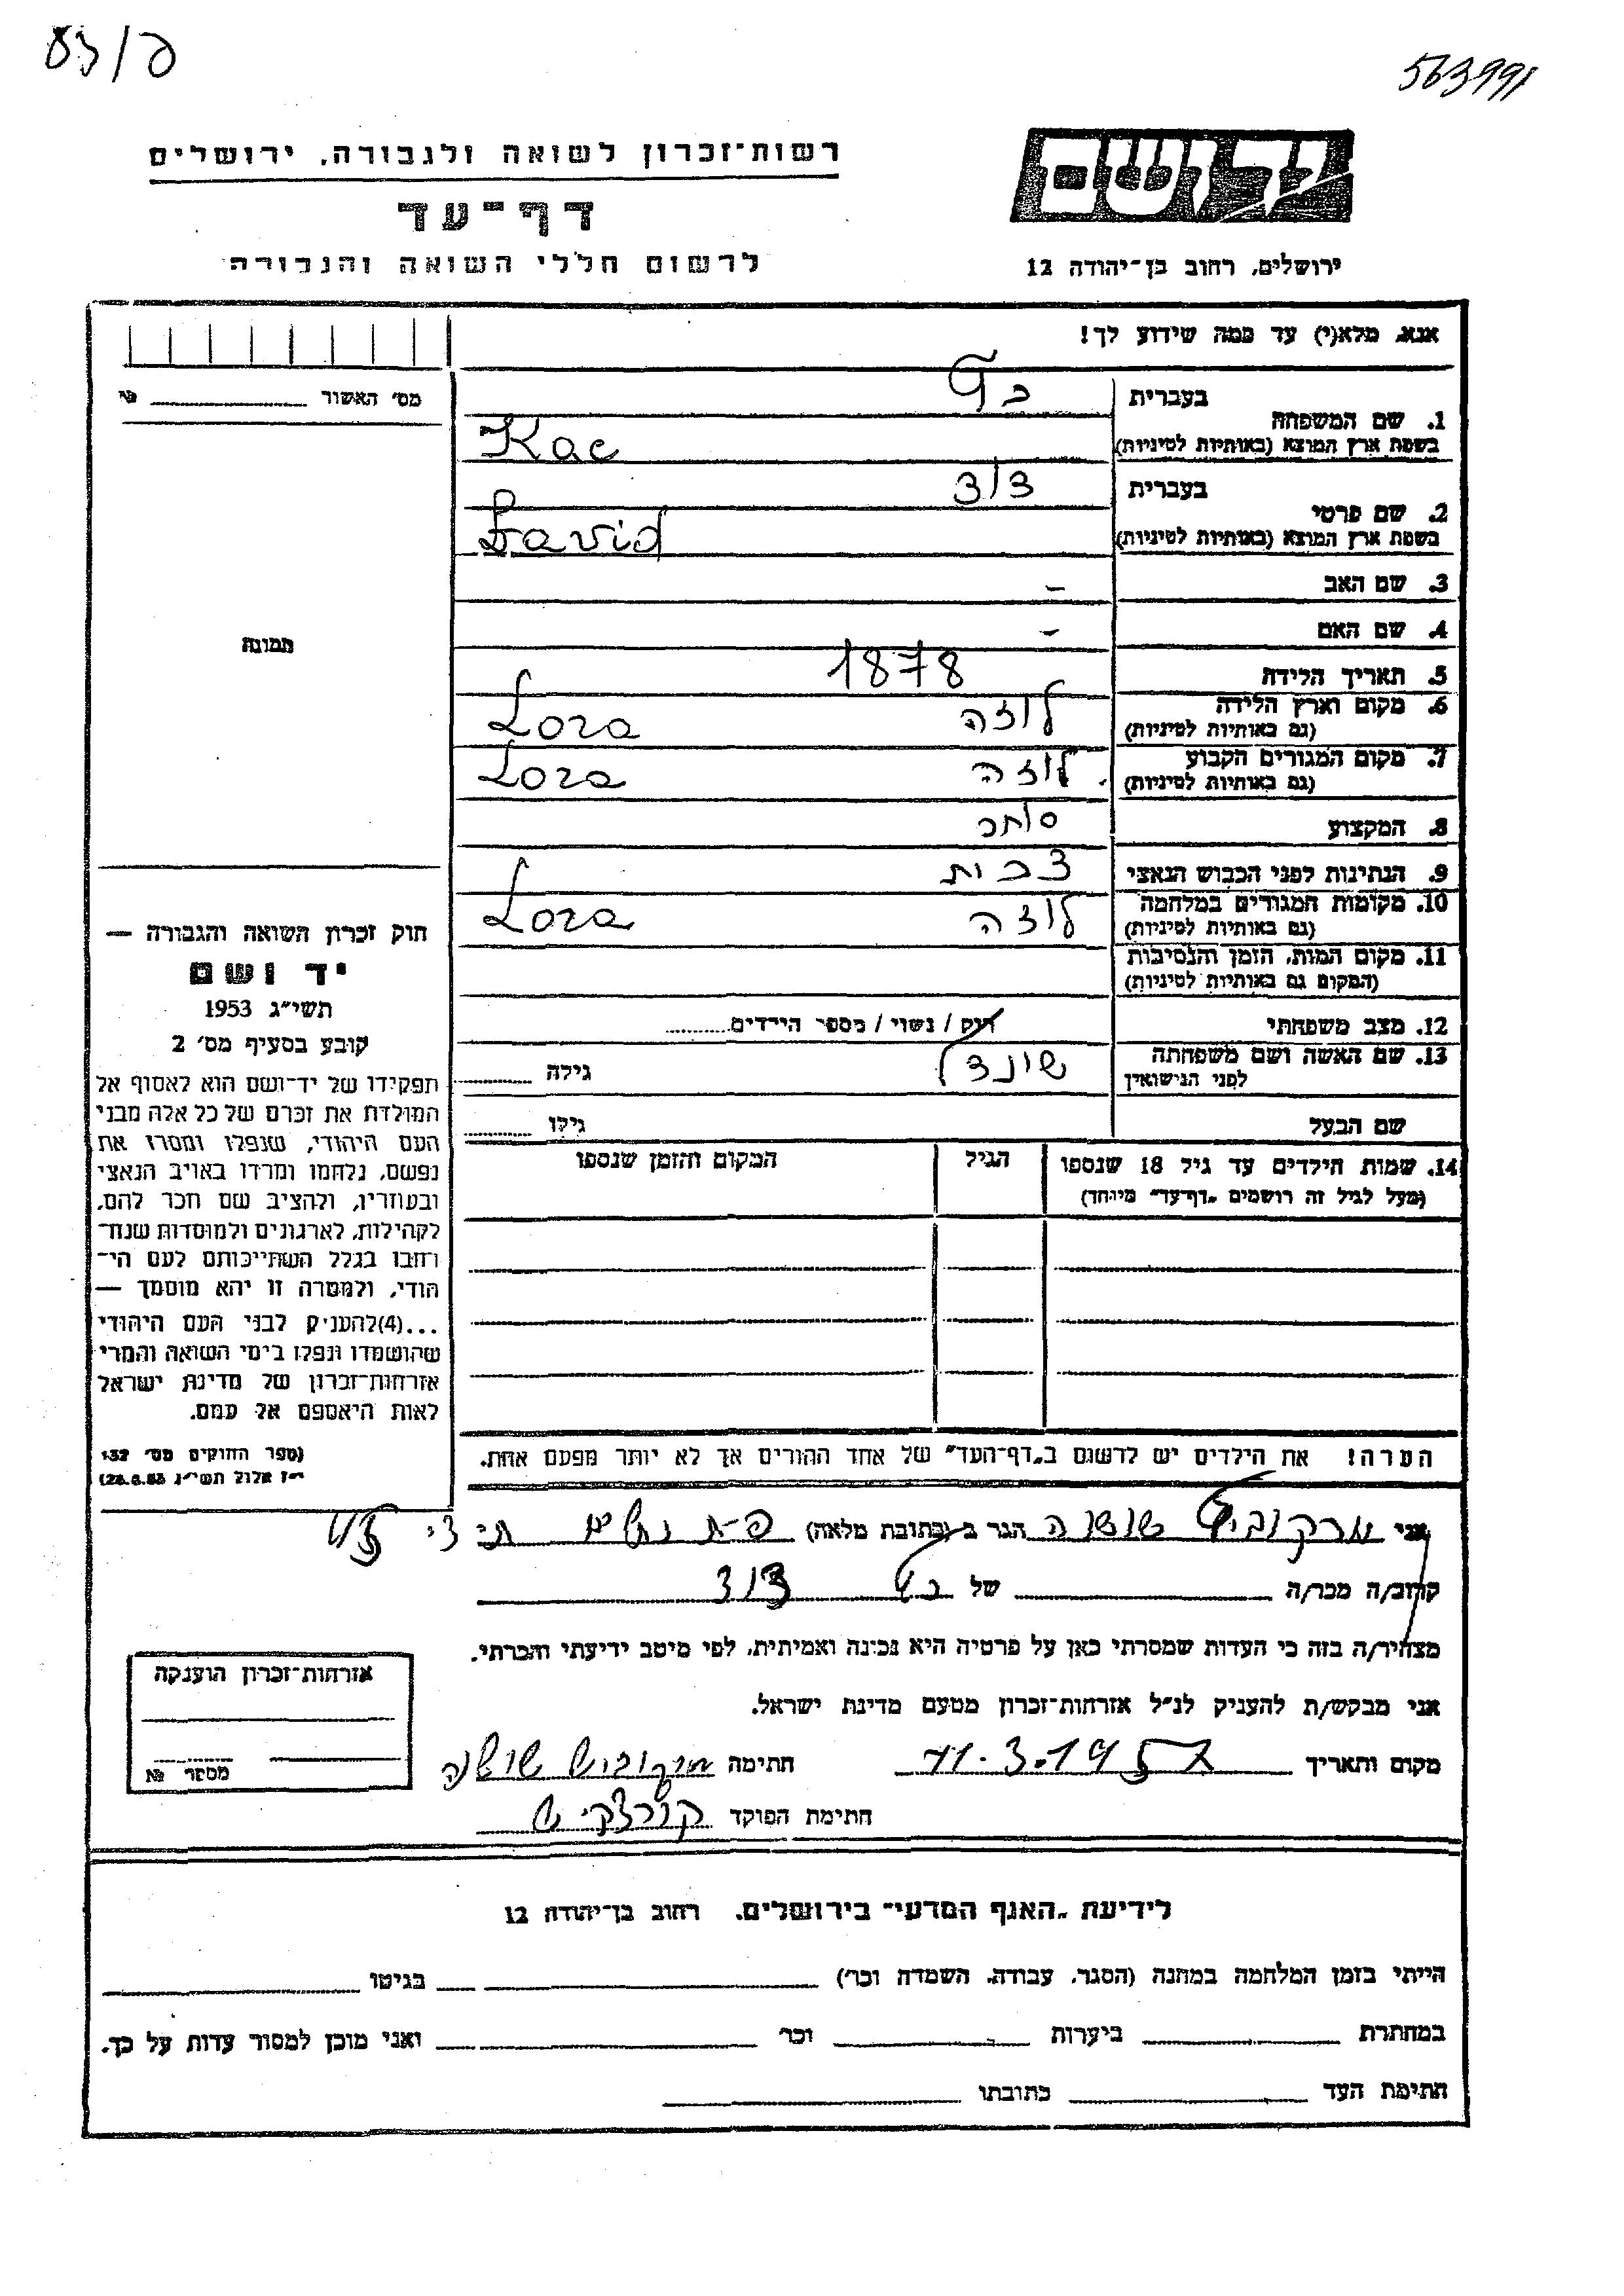 563991
רשות־זכרון לשואה ולגבורה, ירושלים
דף־עד
לרשום חללי השואה והגבורה
יד ושם
ירושלים, רחוב בן־יהודה 12
אנא, מלא(י) עד כמה שידוע לך!
מס׳ האשור № 
1. שם המשפחה בעברית כץ
בשפת ארץ המוצא (באותיות לטיניות) Kac
2. שם פרטי בעברית דוד
בשפת ארץ המוצא (באותיות לטיניות) David
3. שם האב –
4. שם האם –
5. תאריך הלידה 1878
6. מקום וארץ הלידה לודזה Loza
(גם באותיות לטיניות)
7. מקום המגורים הקבוע לודזה Loza
(גם באותיות לטיניות)
8. המקצוע סוחר
9. הנתינות לפני הכבוש הנאצי
10. מקומות המגורים במלחמה Loza
(גם באותיות לטיניות)
11. מקום המות, הזמן והנסיבות
(המקום גם באותיות לטיניות)
12. מצב משפחתי רווק / נשוי / מספר הילדים
13. שם האשה ושם משפחתה לפני הנישואין גילה
שם הבעל גילו
14. שמות הילדים עד גיל 18 שנספו הגיל המקום והזמן שנספו
(מעל לגיל זה רושמים „דף־עד״ מיוחד)
הערה! את הילדים יש לרשום ב„דף־העד״ של אחד ההורים אך לא יותר מפעם אחת.
תמונה
חוק זכרון השואה והגבורה —
יד ושם
תשי״ג 1953
קובע בסעיף מס׳ 2
תפקידו של יד־ושם הוא לאסוף אל
המולדת את זכרם של כל אלה מבני
העם היהודי, שנפלו ומסרו את
נפשם, נלחמו ומרדו באויב הנאצי
ובעוזריו, ולהציב שם וזכר להם,
לקהילות, לארגונים ולמוסדות שנח־
רבו בגלל השתייכותם לעם הי־
הודי, ולמטרה זו יהא מוסמך —
...(4) להעניק לבני העם היהודי
שהושמדו ונפלו בימי השואה והמרי
אזרחות־זכרון של מדינת ישראל
לאות היאספם אל עמם.
(ספר החוקים מס׳ 132
י״ז אלול תשי״ג 28.8.53)
אני מרקוביץ שושנה הגר ב (כתובת מלאה)
קרוב/ה מכר/ה של כץ דוד
מצהיר/ה בזה כי העדות שמסרתי כאן על פרטיה היא נכונה ואמיתית, לפי מיטב ידיעתי והכרתי.
אני מבקש/ת להעניק לנ״ל אזרחות־זכרון מטעם מדינת ישראל.
מקום ותאריך 11.3.1957 חתימה מרקוביץ שושנה
חתימת הפוקד
אזרחות־זכרון הוענקה
מספר №
לידיעת „האגף המדעי״ בירושלים, רחוב בן־יהודה 12
הייתי בזמן המלחמה במחנה (הסגר, עבודה, השמדה וכר׳) בגיטו
במחתרת ביערות וכר׳ ואני מוכן למסור עדות על כך.
חתימת העד כתובתו